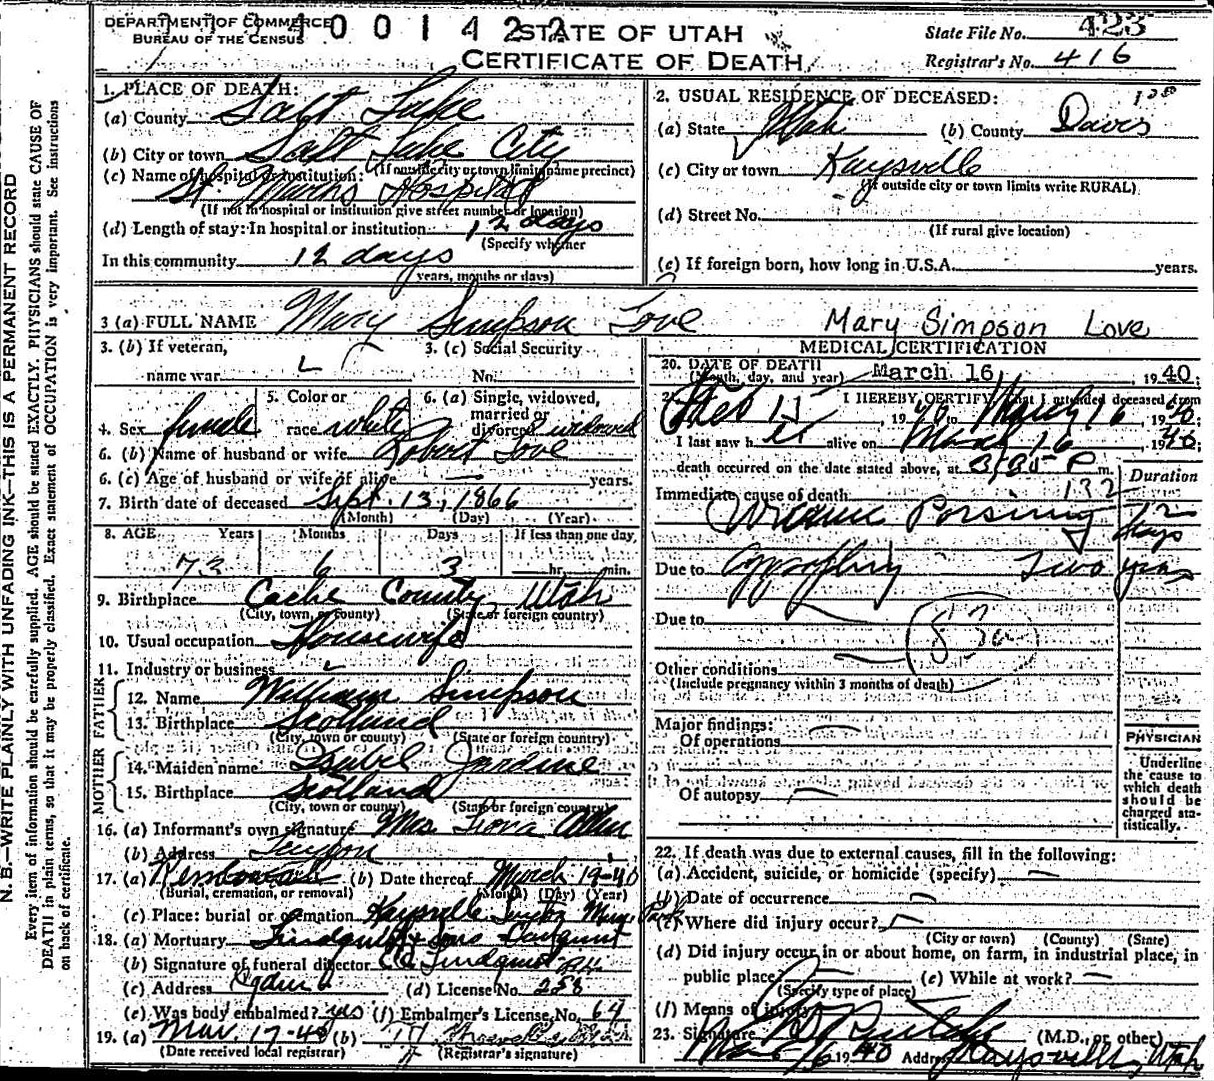 DEPARTMENT OF COMMERCE
BUREAU OF THE CENSUS
0 0 1 4 2 2
STATE OF UTAH
CERTIFICATE OF DEATH
State File No. 423
Registrar's No. 416
N. B.—WRITE PLAINLY WITH UNFADING INK—THIS IS A PERMANENT RECORD
Every item of information should be carefully supplied. AGE should be stated EXACTLY. PHYSICIANS should state CAUSE OF
DEATH in plain terms, so that it may be properly classified. Exact statement of OCCUPATION is very important. See instructions
on back of certificate.
1. PLACE OF DEATH:
(a) County Salt Lake
(b) City or town Salt Lake City
(If outside city or town limits name precinct)
(c) Name of hospital or institution:
St Marks Hospital
(If not in hospital or institution give street number or location)
(d) Length of stay: In hospital or institution 12 days
(Specify whether
In this community 12 days
years, months or days)
2. USUAL RESIDENCE OF DECEASED:
(a) State Utah (b) County Davis
(c) City or town Kaysville
(If outside city or town limits write RURAL)
(d) Street No.
(If rural give location)
(e) If foreign born, how long in U.S.A. years.
3 (a) FULL NAME Mary Simpson Love Mary Simpson Love
3. (b) If veteran,
name war
3. (c) Social Security
No.
4. Sex female
5. Color or
race white
6. (a) Single, widowed,
married or
divorced widowed
6. (b) Name of husband or wife Robert Love
6. (c) Age of husband or wife if alive — years.
7. Birth date of deceased Sept 13, 1866
(Month) (Day) (Year)
8. AGE Years Months Days If less than one day
73 6 3 hr. min.
9. Birthplace Cache County, Utah
(City, town, or county) (State or foreign country)
10. Usual occupation Housewife
11. Industry or business
FATHER
12. Name William Simpson
13. Birthplace Scotland
(City, town or county) (State or foreign country)
MOTHER
14. Maiden name Isabel Jardine
15. Birthplace Scotland
(City, town or county) (State or foreign country)
16. (a) Informant's own signature Mrs Allen
(b) Address
17. (a) (b) Date thereof March 19-40
(Burial, cremation, or removal) (Month) (Day) (Year)
(c) Place: burial or cremation Kaysville
18. (a) Mortuary Lindquist & Sons
(b) Signature of funeral director Lindquist
(c) Address Ogden (d) License No. 258
(e) Was body embalmed? yes (f) Embalmer's License No. 64
19. (a) Mar. 17-40 (b)
(Date received local registrar) (Registrar's signature)
MEDICAL CERTIFICATION
20. DATE OF DEATH
(Month, day, and year) March 16, 1940.
21. I HEREBY CERTIFY, that I attended deceased from
Feb 15, 1940 to March 16, 1940.
I last saw her alive on March 16 1940;
death occurred on the date stated above, at P m.
Duration
Immediate cause of death 132
Uremic Poisoning 12 days
Due to Two years
Due to
83a
Other conditions
(Include pregnancy within 3 months of death)
Major findings:
Of operations
Of autopsy
PHYSICIAN
Underline
the cause to
which death
should be
charged sta-
tistically.
22. If death was due to external causes, fill in the following:
(a) Accident, suicide, or homicide (specify)
(b) Date of occurrence
(c) Where did injury occur?
(City or town) (County) (State)
(d) Did injury occur in or about home, on farm, in industrial place, in
public place?
(Specify type of place)
(e) While at work?
(f) Means of injury
23. Signature (M.D., or other)
1940 Address Kaysville, Utah